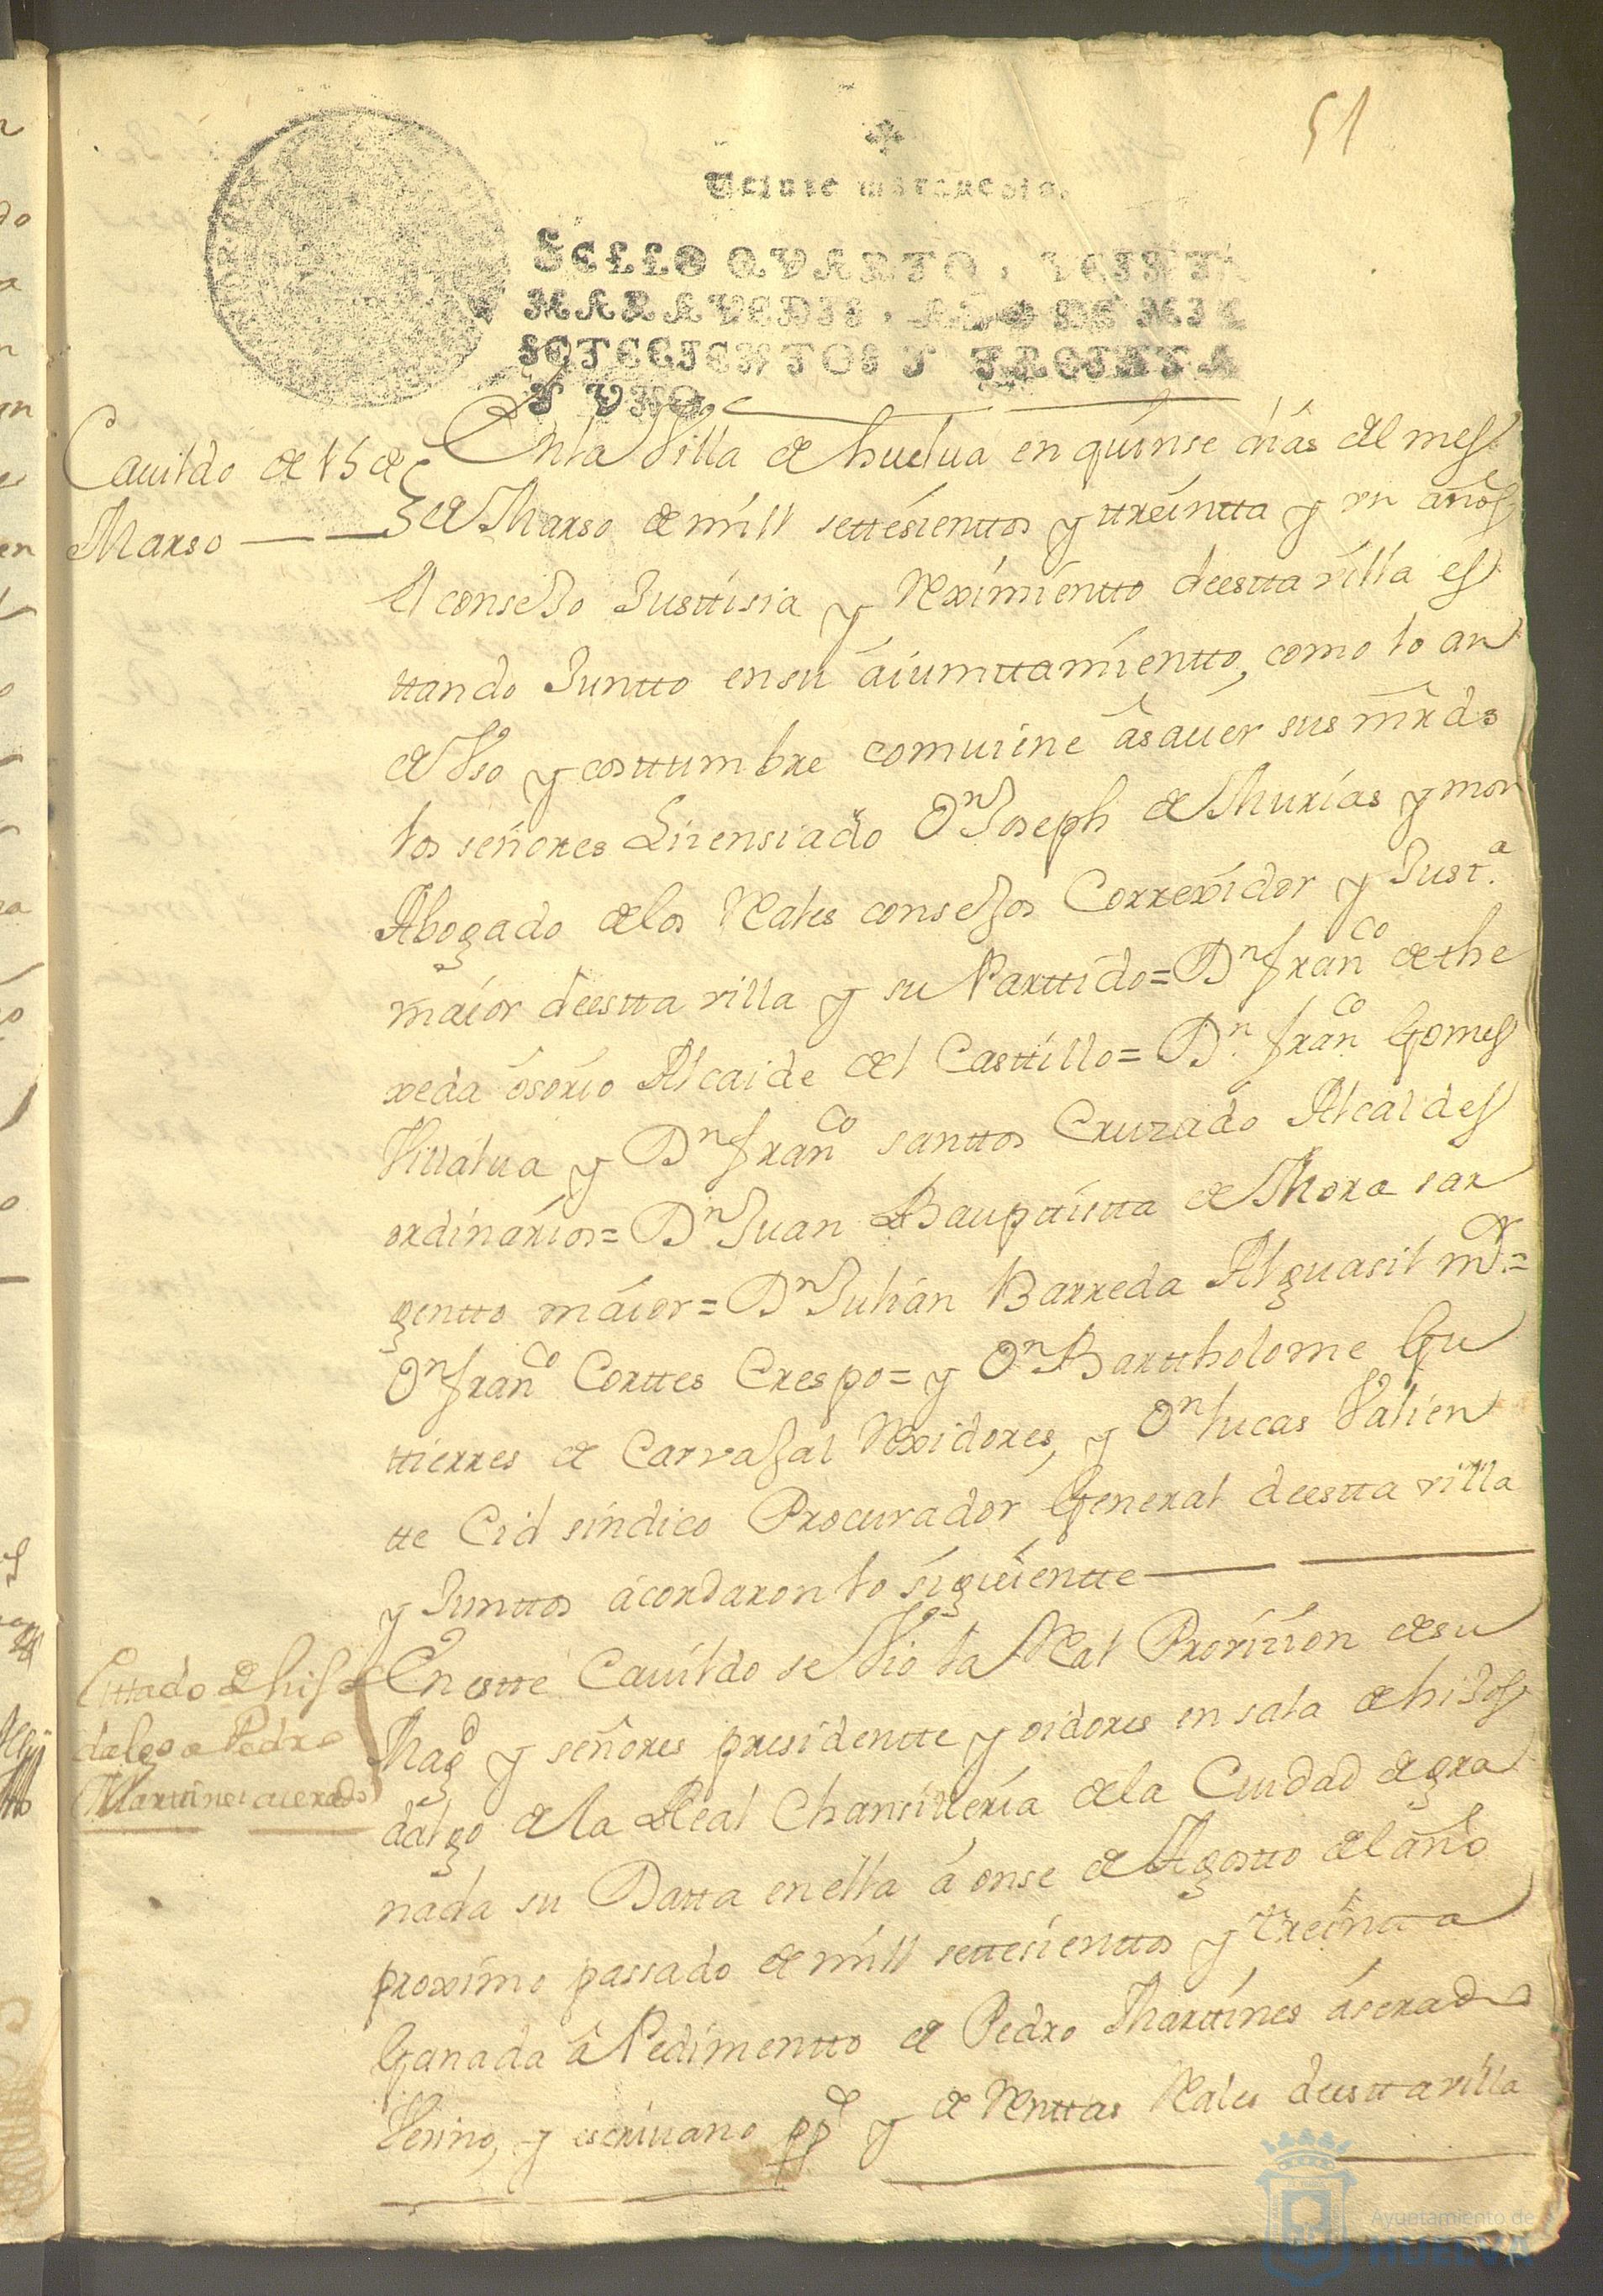 51
Veinte maravedis.
SELLO QVARTO, VEINT
MARAVEDIS, AÑO DE MIL
SETECIENTOS Y TREINTA
Y VNO.
Cauildo de 15 de
Marso
En la Villa de huelua en quinse dias del mes
de Marso de mill settesienttos y ttreintta y un años
el conseJo Justtisia y Reximientto deestta villa es
ttando Juntto en su aiunttamientto, como lo an
de Vso y costtumbre comuiene asauer sus mrds
los señores Lisensiado Dn Joseph de Murias y mon
Abogado de los Rales conseJos Correxidor y Justa
maior deestta villa y su Parttido= Dn Franco de the
xeda osorio Alcaide del Casttillo= Dn Franco Gomes
Villalua y Dn Franco santtos Cruzado Alcaldes
ordinarios= Dn Juan Baupttistta de Mora sar
gentto maior= Dn Julian Barreda Alguasil mor=
Dn Franco Corttes Crespo= y Dn Bartholome Gu
ttierres de CarvaJal Rexidores, y Dn lucas Valien
tte Cid sindico Procurador General deestta villa
y Junttos acordaron lo siguientte
Esttado de hijo
dalgo a Pedro
Marttines acerado
En estte Cauildo se Vio la Real Provizion de su
Magd y señores presidentte y oidores en sala de hiJos
dalgo de la Real Chansilleria de la Ciudad de gra
nada su Datta en ella a onse de Agostto del año
proximo passado de mill settesienttos y treintta
Ganada a Pedimentto de Pedro Marttines aserado
Vesino, y escriuano ppco y de Renttas Rales deestta villa
Ayuntamiento de
HUELVA